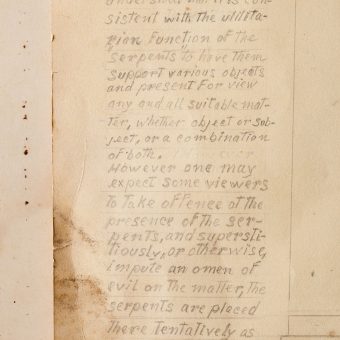 understood that it is con-
sistent with the utilita-
rian function of the
"serpents" to have them
support various objects
and present for view
any and all suitable mat-
ter, whether object or sub-
ject, or a combination
of both.
However one may
expect some viewers
to take offence at the
presence of the ser-
pents, and supersti-
tiously, or otherwise,
impute an omen of
evil on the matter, the
serpents are placed
there tentatively as